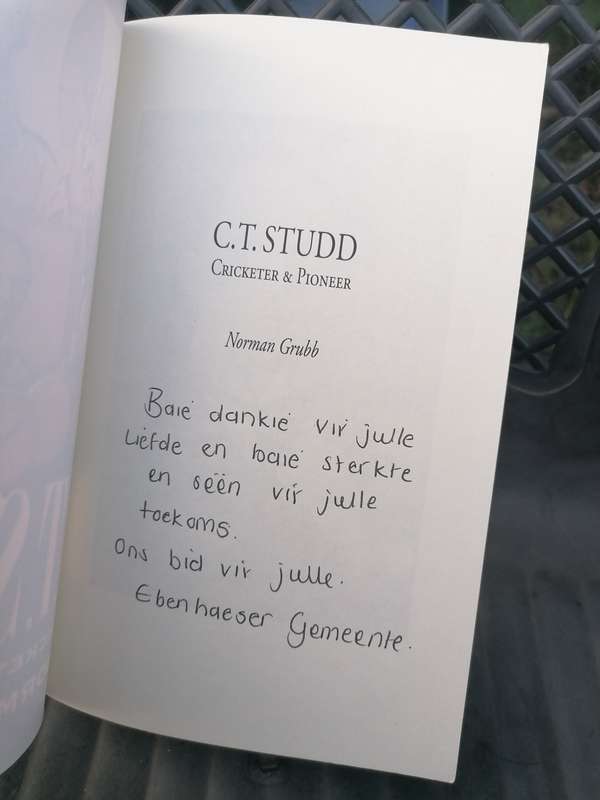 C.T. STUDD
CRICKETER & PIONEER
Norman Grubb
Baie dankie vir julle
Liefde en baie sterkte
en sëën vir julle
toekoms.
Ons bid vir julle.
Ebenhaeser Gemeente.